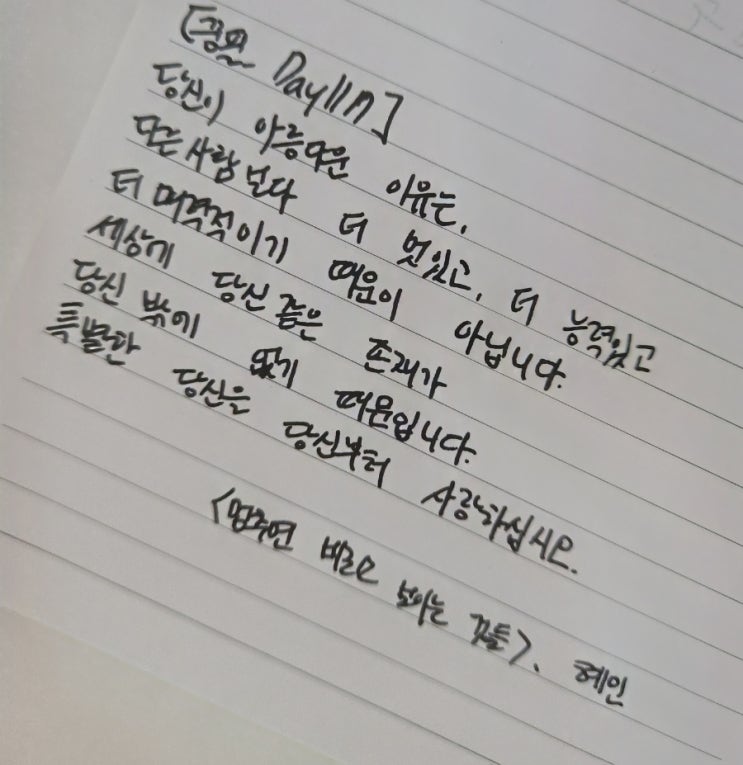 [필사 Day117]
당신이 아름다운 이유는,
다른 사람보다 더 멋있고, 더 능력있고
더 매력적이기 때문이 아닙니다.
세상에 당신 같은 존재가
당신 밖에 없기 때문입니다.
특별한 당신을 당신부터 사랑하십시오.
<멈추면 비로소 보이는 것들>, 혜민